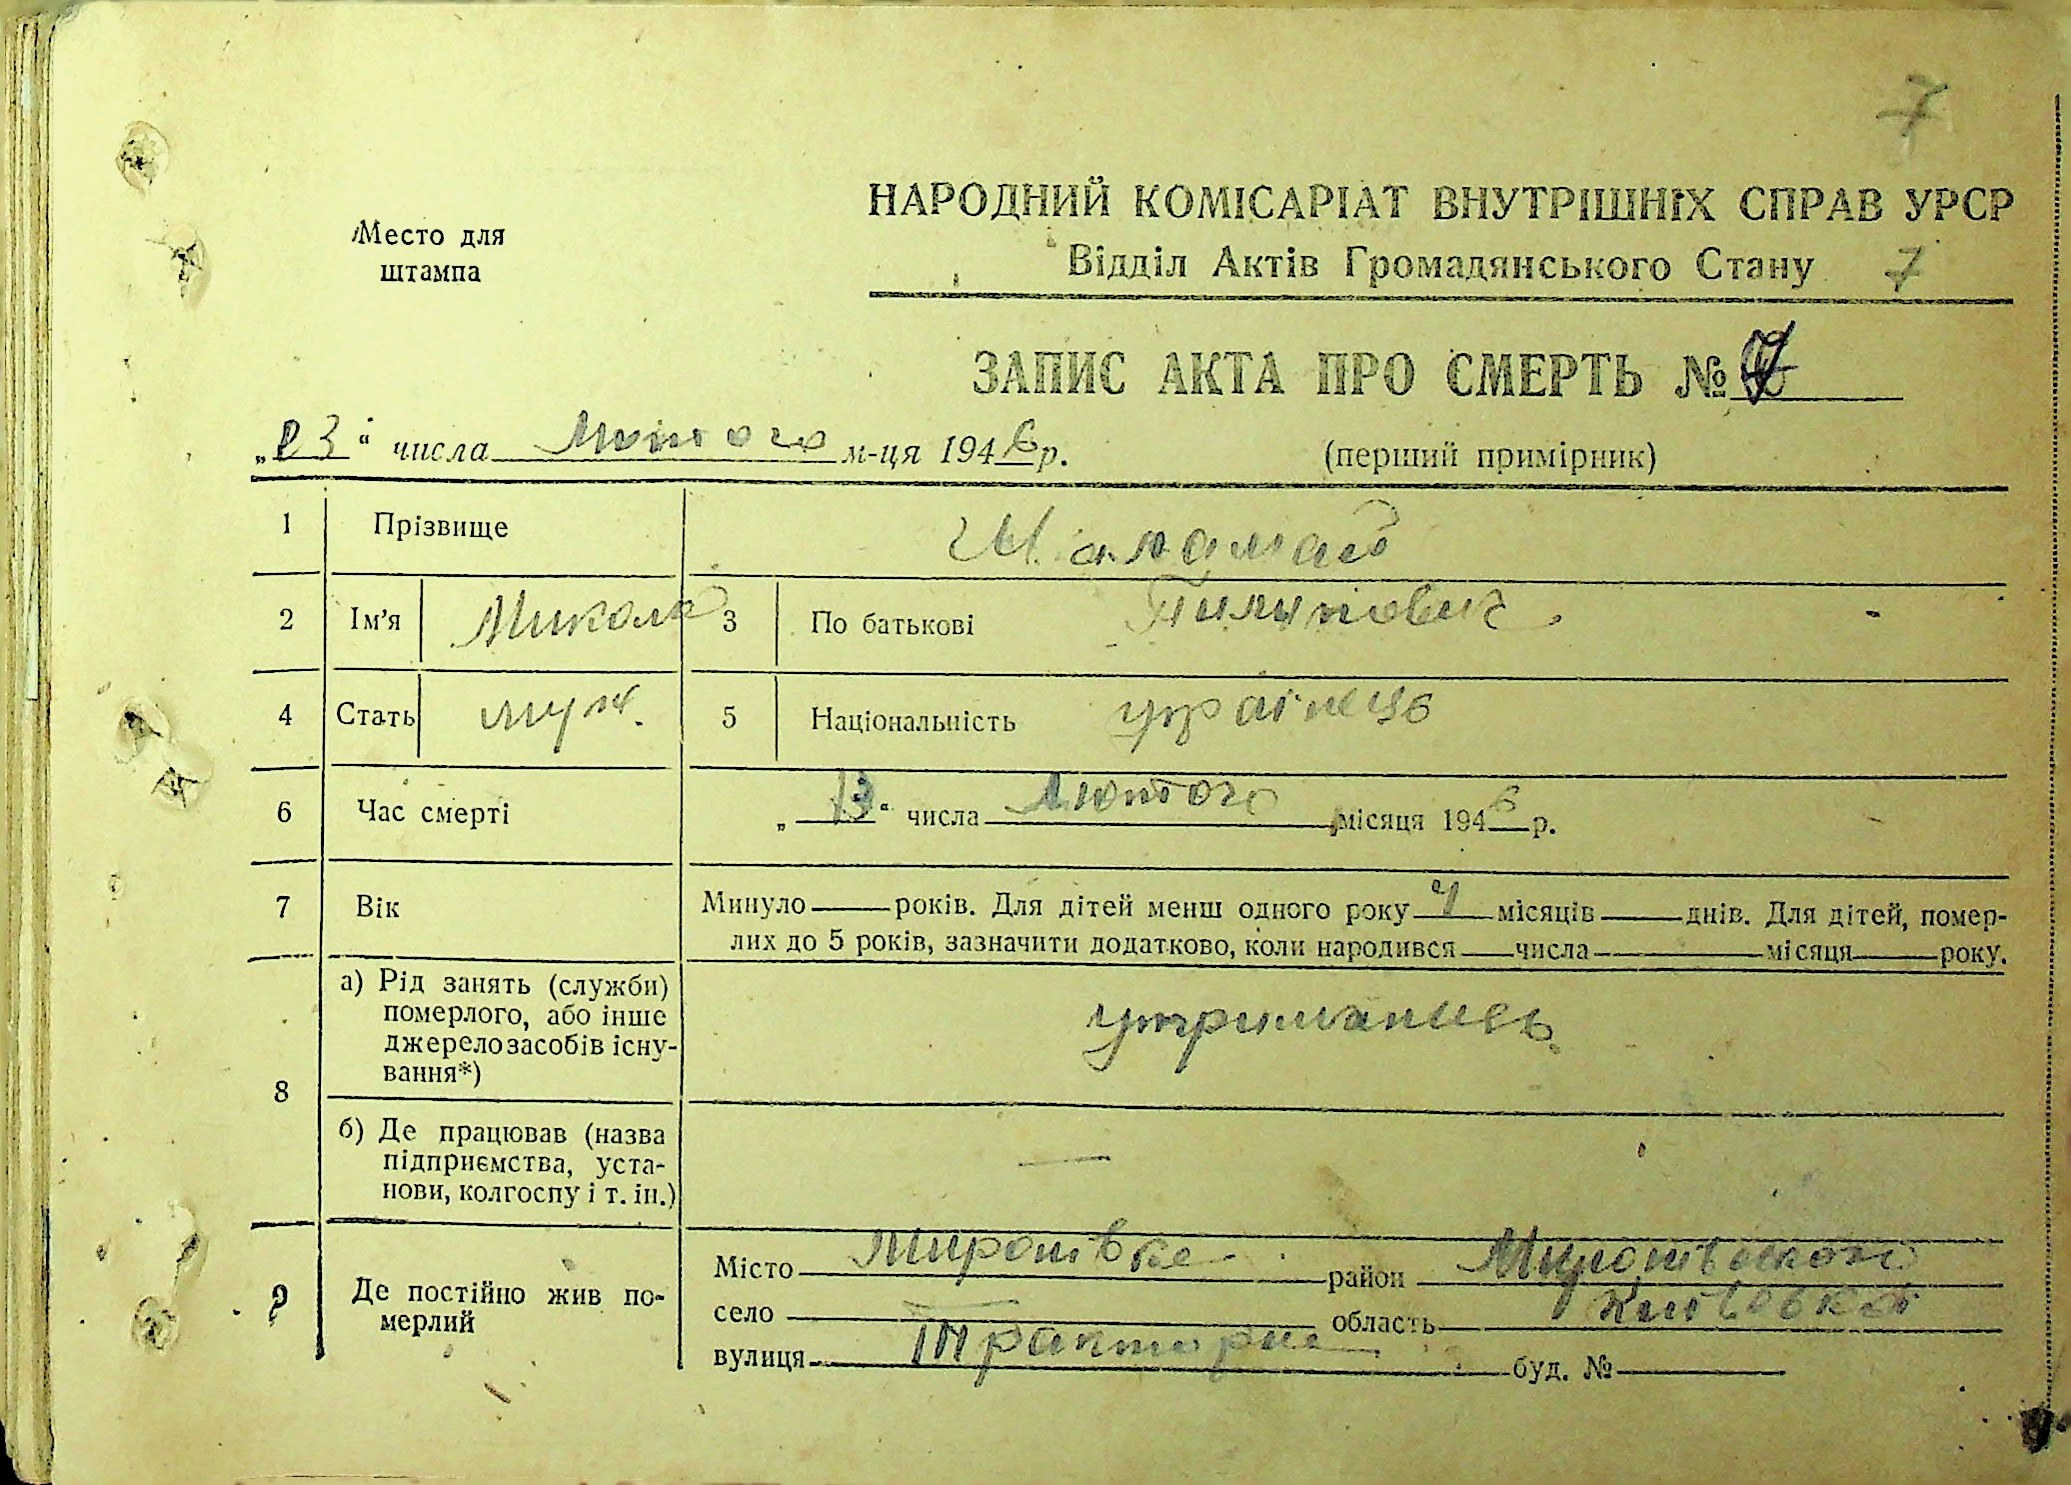 7
Место для
штампа
НАРОДНИЙ КОМІСАРІАТ ВНУТРІШНІХ СПРАВ УРСР
Відділ Актів Громадянського Стану 7
ЗАПИС АКТА ПРО СМЕРТЬ № 7
„23“ числа Лютого м-ця 1946 р.
(перший примірник)
1 Прізвище
2 Ім’я Микола 3 По батькові Пилипович
4 Стать муж. 5 Національність українець
6 Час смерті „13“ числа Лютого місяця 1946 р.
7 Вік Минуло — років. Для дітей менш одного року 4 місяців — днів. Для дітей, помер-
лих до 5 років, зазначити додатково, коли народився — числа — місяця — року.
8 а) Рід занять (служби)
померлого, або інше
джерело засобів існу-
вання*)
утриманець
б) Де працював (назва
підприємства, уста-
нови, колгоспу і т. ін.)
—
9 Де постійно жив по-
мерлий
Місто Миронівка район Миронівського
село — область Київської
вулиця Тракторна буд. №